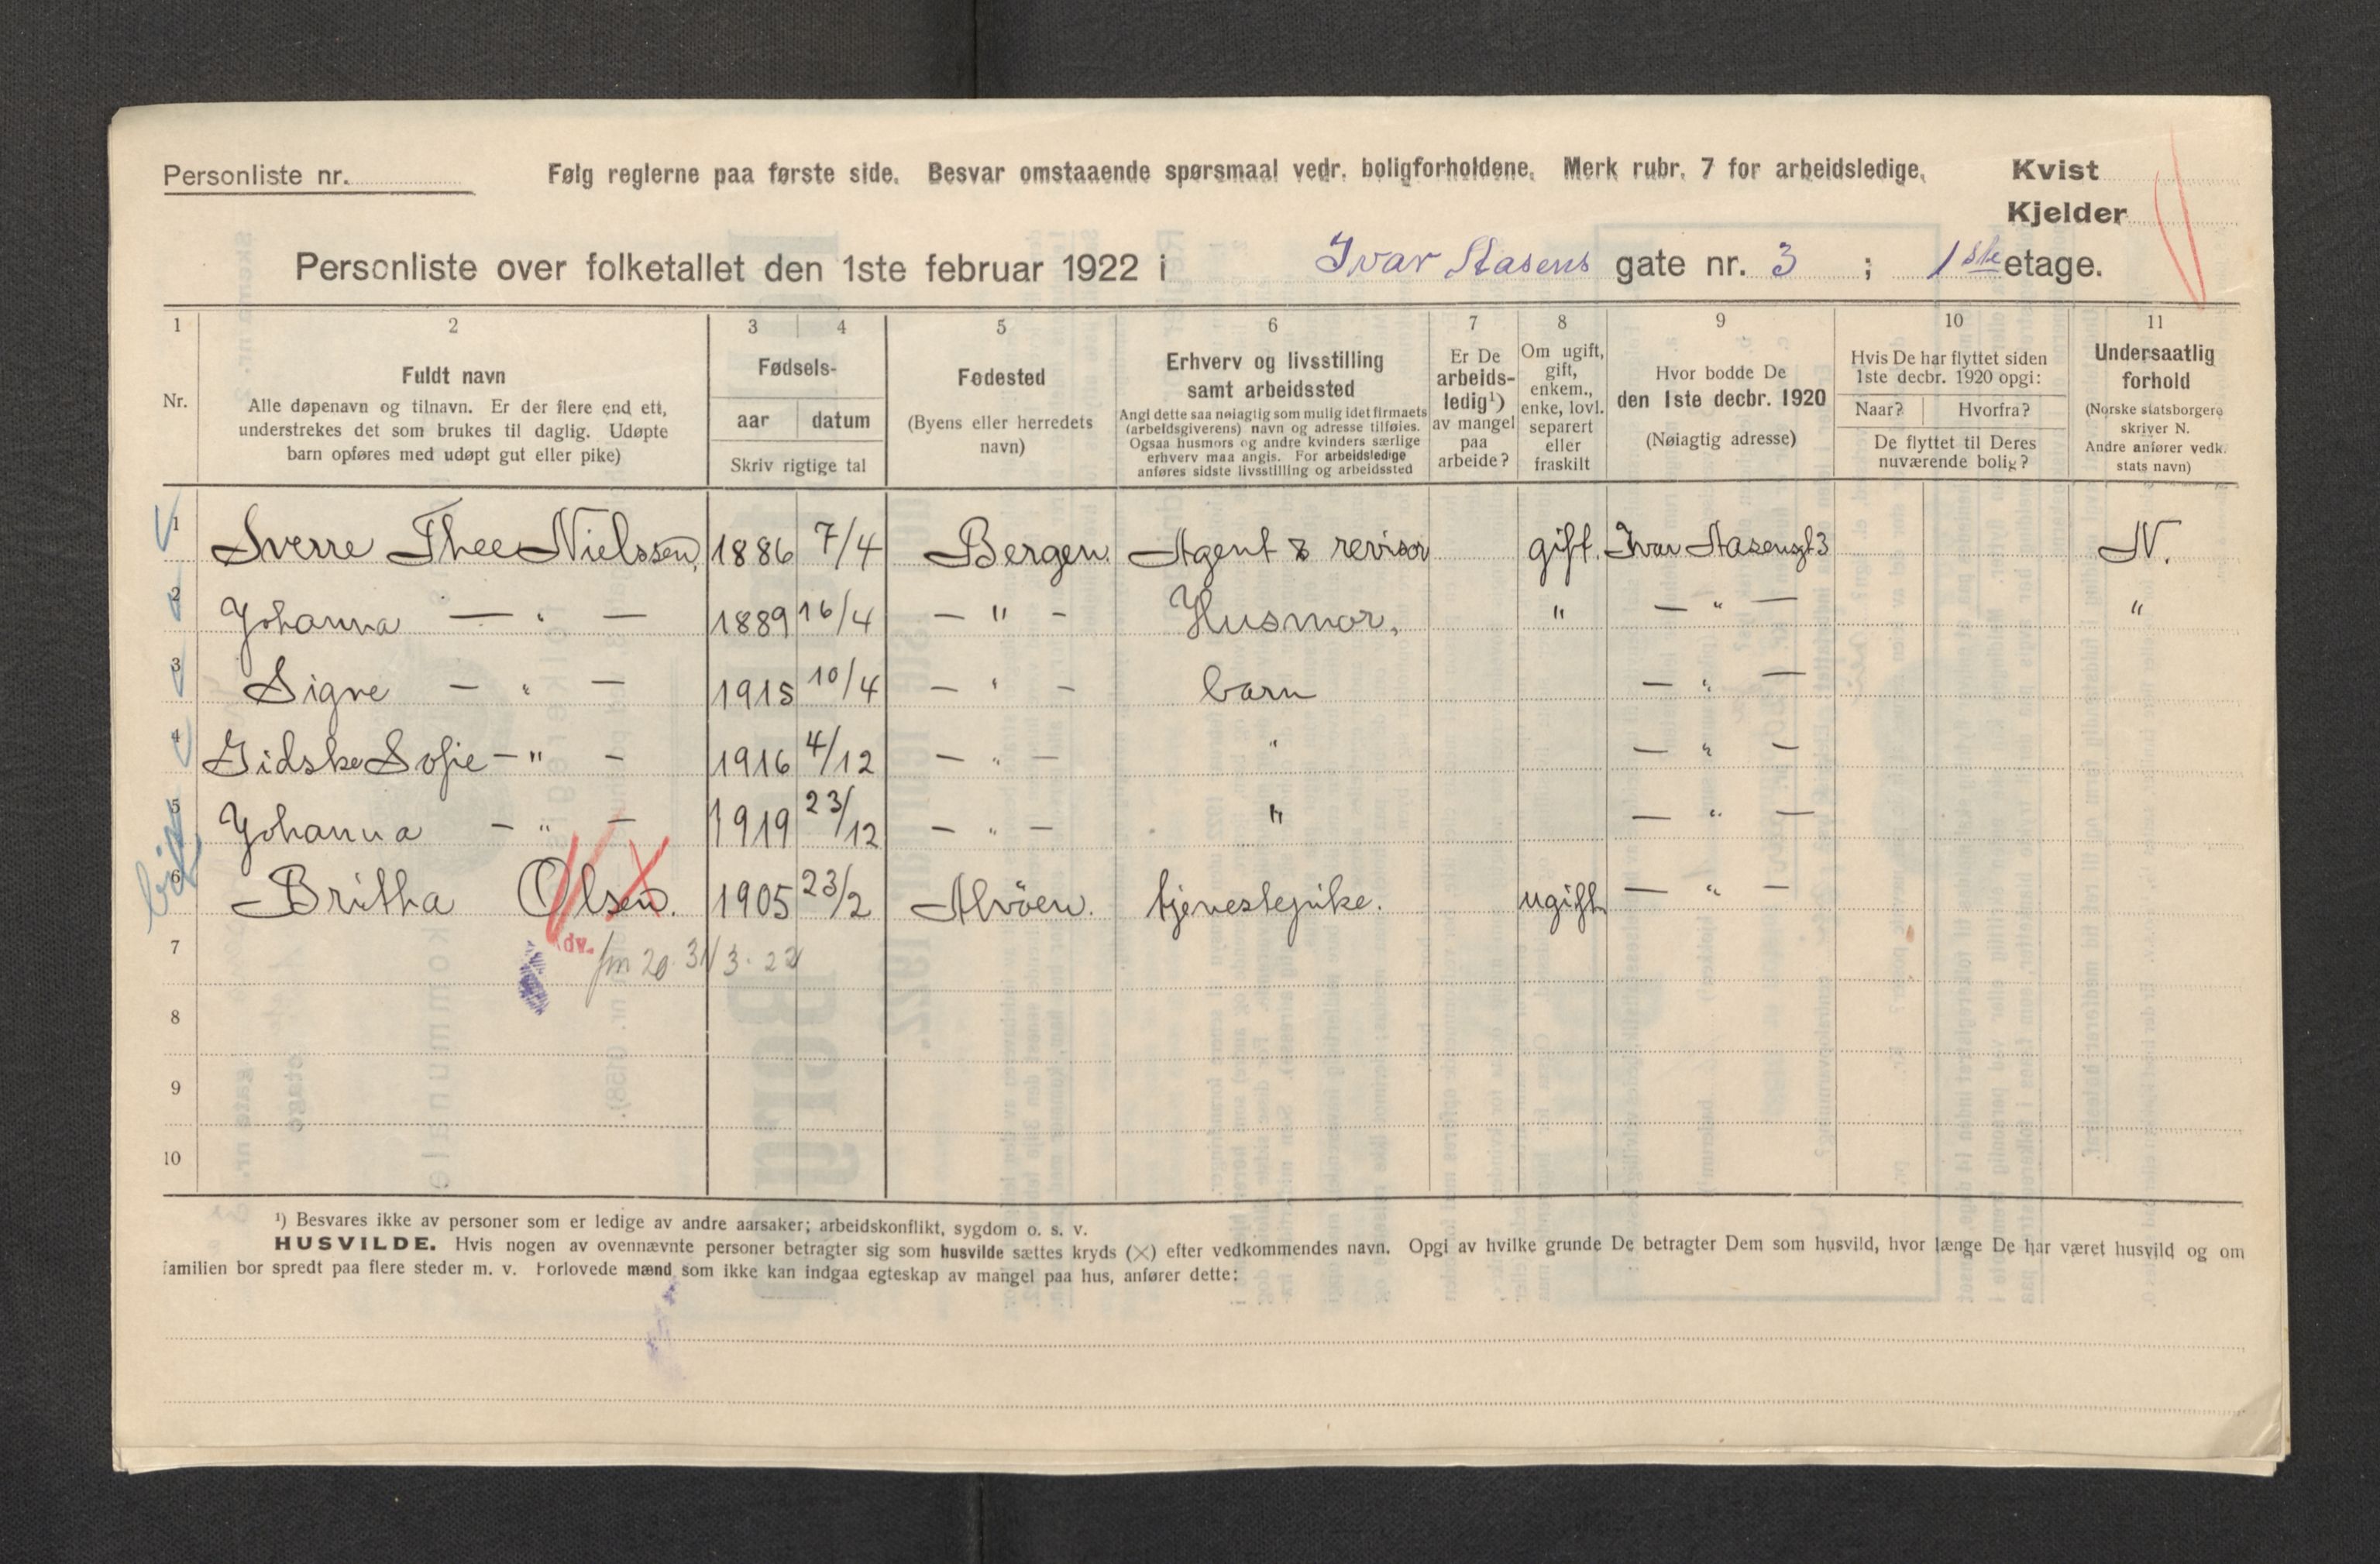 Personliste nr. Følg reglerne paa første side. Besvar omstaaende spørsmaal vedr. boligforholdene. Merk rubr. 7 for arbeidsledige. Kvist
Kjelder
Personliste over folketallet den 1ste februar 1922 i Ivar Aasens gate nr. 3 ; 1ste etage.
1 2 3 4 5 6 7 8 9 10 11
Nr.
Fuldt navn
Alle døpenavn og tilnavn. Er der flere end ett,
understrekes det som brukes til daglig. Udøpte
barn opføres med udøpt gut eller pike)
Fødsels-
aar datum
Skriv rigtige tal
Fødested
(Byens eller herredets
navn)
Erhverv og livsstilling
samt arbeidssted
Angi dette saa nøiagtig som mulig idet firmaets
(arbeidsgiverens) navn og adresse tilføies.
Ogsaa husmors og andre kvinders særlige
erhverv maa angis. For arbeidsledige
anføres sidste livsstilling og arbeidssted
Er De
arbeids-
ledig¹)
av mangel
paa
arbeide?
Om ugift,
gift,
enkem.,
enke, lovl.
separert
eller
fraskilt
Hvor bodde De
den 1ste decbr. 1920
(Nøiagtig adresse)
Hvis De har flyttet siden
1ste decbr. 1920 opgi:
Naar? Hvorfra?
De flyttet til Deres
nuværende bolig?
Undersaatlig
forhold
(Norske statsborgere
skriver N.
Andre anfører vedk.
stats navn)
1 Sverre Thee Nielssen, 1886 7/4 Bergen. Agent & revisor gift. Ivar Aasensgt 3 N.
2 Johanna — " — 1889 16/4 — " — Husmor, " — " — "
3 Signe — " — 1915 10/4 — " — barn — " —
4 Gidske Sofie — " — 1916 4/12 — " — " — " —
5 Johanna — " — 1919 23/12 — " — " — " —
6 Britha Olsen. 1905 23/2 Alvöen. tjenestepike. ugift — " —
7 dv. fm 20. 31/3. 22
8
9
10
¹) Besvares ikke av personer som er ledige av andre aarsaker; arbeidskonflikt, sygdom o. s. v.
HUSVILDE. Hvis nogen av ovennævnte personer betragter sig som husvilde sættes kryds (×) efter vedkommendes navn. Opgi av hvilke grunde De betragter Dem som husvild, hvor længe De har været husvild og om
familien bor spredt paa flere steder m. v. Forlovede mænd som ikke kan indgaa egteskap av mangel paa hus, anfører dette: